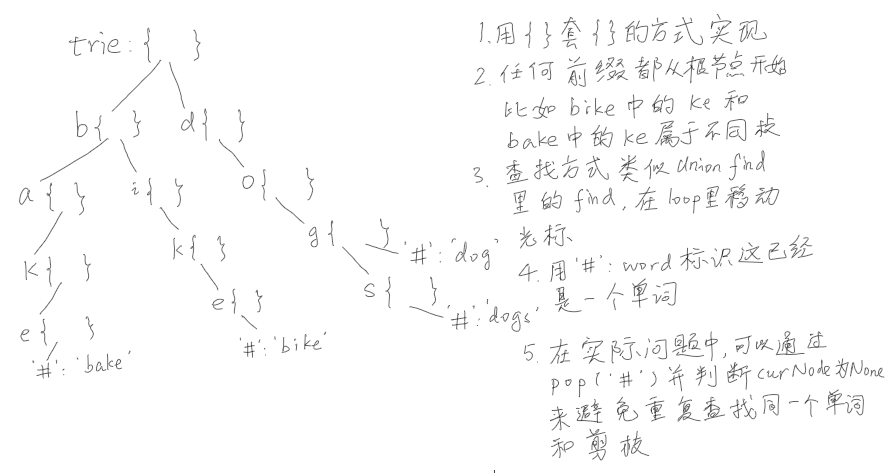 trie: { }
b{ } d{ }
a{ } i{ } o{ }
k{ } k{ } g{ } '#':'dog'
e{ } e{ } s{ } '#':'dogs'
'#':'bake' '#':'bike'
1. 用{}套{}的方式实现
2. 任何前缀都从根节点开始
比如bike中的ke和
bake中的ke属于不同枝
3. 查找方式类似Union find
里的find,在loop里移动
光标
4. 用'#':word标识这已经
是一个单词
5. 在实际问题中,可以通过
pop('#')并判断curNode为None
来避免重复查找同一个单词
和剪枝